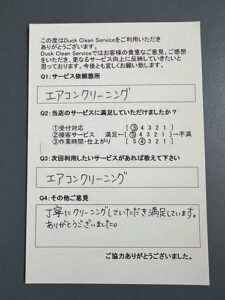 この度はDuck Clean Serviceをご利用いただき
ありがとうございます。
Duck Clean Serviceではお客様の貴重なご意見、ご感想
をいただき、更なるサービス向上に反映していきたいと
思っております。今後とも宜しくお願い致します。
Q1:サービス依頼箇所
エアコンクリーニング
Q2:当店のサービスに満足していただけましたか?
①受付対応 [ 5 4 3 2 1 ]
②接客サービス 満足←[ 5 4 3 2 1 ]→不満
③作業時間・仕上がり [ 5 4 3 2 1 ]
Q3:次回利用したいサービスがあれば教えて下さい
エアコンクリーニング
Q4:その他ご意見
丁寧にクリーニングしていただき満足しています。
ありがとうございました。
ご協力ありがとうございました。